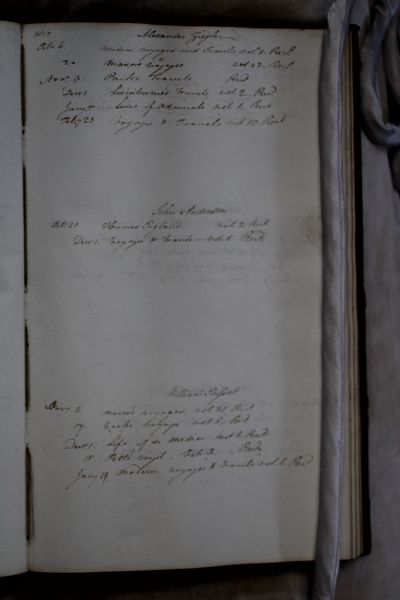 1810 Alexander Greyler
Oct. 6. modern Voyages and Travels vol 4. Recd
20 mavor's Voyages vol 22. Recd
Novr. 3. Parke Travels Recd
Decr 1 Travels vol. 2. Recd
Jany 5 Lives of Admirals vol. 1. Recd
Feby 23 Voyages & Travels vol 10. Recd
John Anderson
Oct 20 Humes England vol. 2 Recd
Decr 1. Voyages & Travels vol 5. Recd
William
Novr 2 mavor's voyages. vol 21 Recd
17 Cooks Voyages vol 5. Recd
Decr 1. Life of de Medici vol 1. Recd
15 Virgil. Vol. 3. Recd
Jany 19 Modern voyages & travels vol 1. Recd